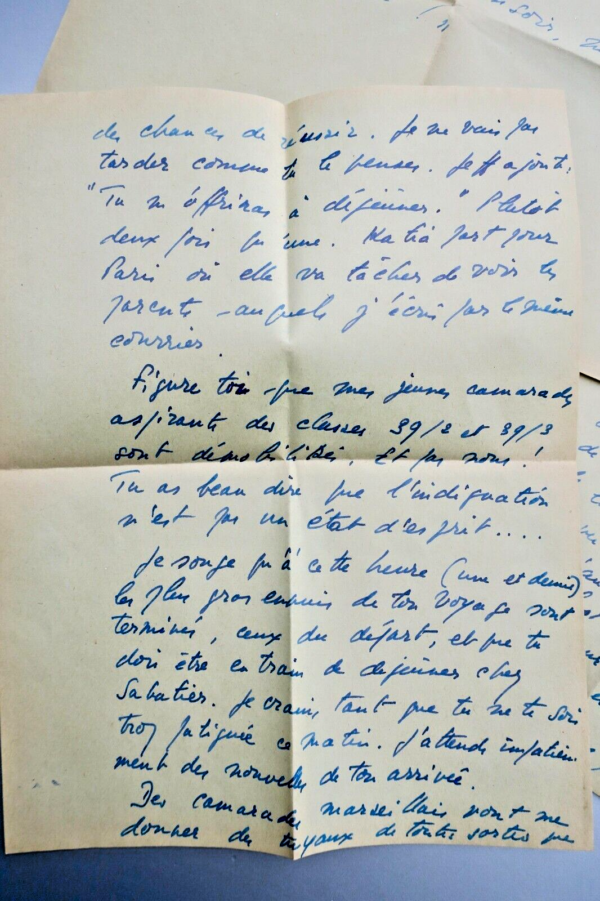 des chances de réussir. Je ne vais pas
tarder comme tu le penses. Jeff ajoute:
"Tu m'offriras à déjeûner." Plutôt
deux fois qu'une. Katia part pour
Paris où elle va tâcher de voir les
parents – auxquels j'écris par le même
courrier.
Figure toi que mes jeunes camarades
aspirants des classes 39/2 et 39/3
sont démobilisés. Et pas nous!
Tu as beau dire que l'indignation
n'est pas un état d'esprit....
Je songe qu'à cette heure (une et demie)
les plus gros ennuis de ton voyage sont
terminés, ceux du départ, et que tu
dois être en train de déjeûner chez
Sabatier. Je crains tant que tu ne te sois
trop fatiguée ce matin. J'attends impatiem
ment des nouvelles de ton arrivée.
Des camarades marseillais vont me
donner des tuyaux de toutes sortes que